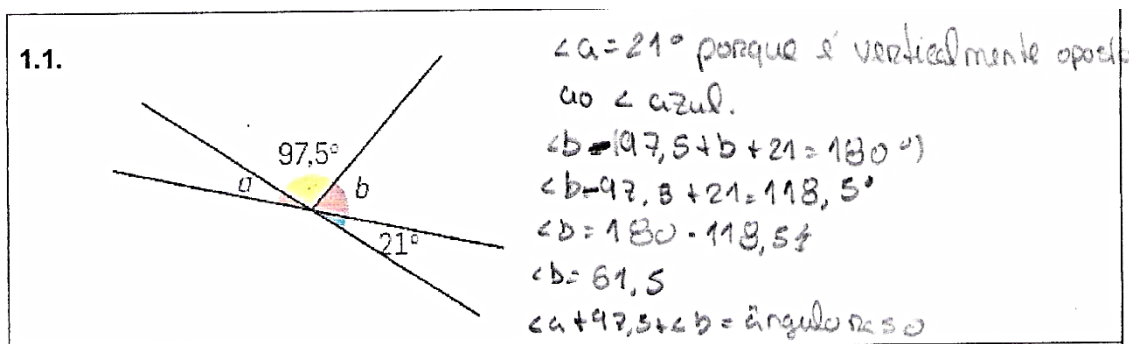 1.1.
97,5°
a
b
21°
<a = 21° porque é verticalmente oposto
ao < azul.
<b = (97,5 + b + 21 = 180°)
<b = 97,5 + 21 = 118,5°
<b = 180 - 118,5
<b = 61,5
<a + 97,5 + <b = ângulo raso